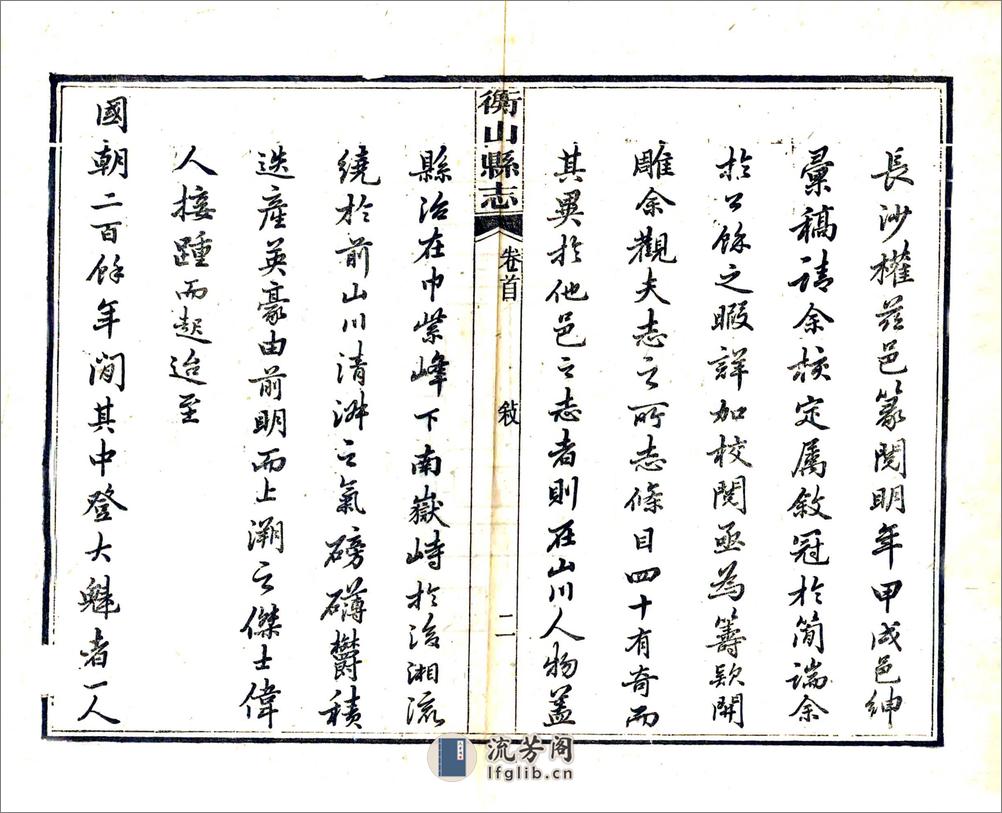 長沙權茲邑篆閱明年甲戌邑紳
彙稿請余校定属敘冠於简端余
於公餘之暇詳加校閱亟為籌款開
雕余觀夫志之所志條目四十有奇而
其異於他邑之志者則在山川人物蓋
衡山縣志
卷首
敍
二
縣治在巾紫峰下南嶽峙於後湘流
繞於前山川清淑之氣磅礴欝積
迭產英豪由前明而上溯之傑士偉
人接踵而起迨至
國朝二百餘年间其中登大魁者一人
流芳阁
lfglib.cn